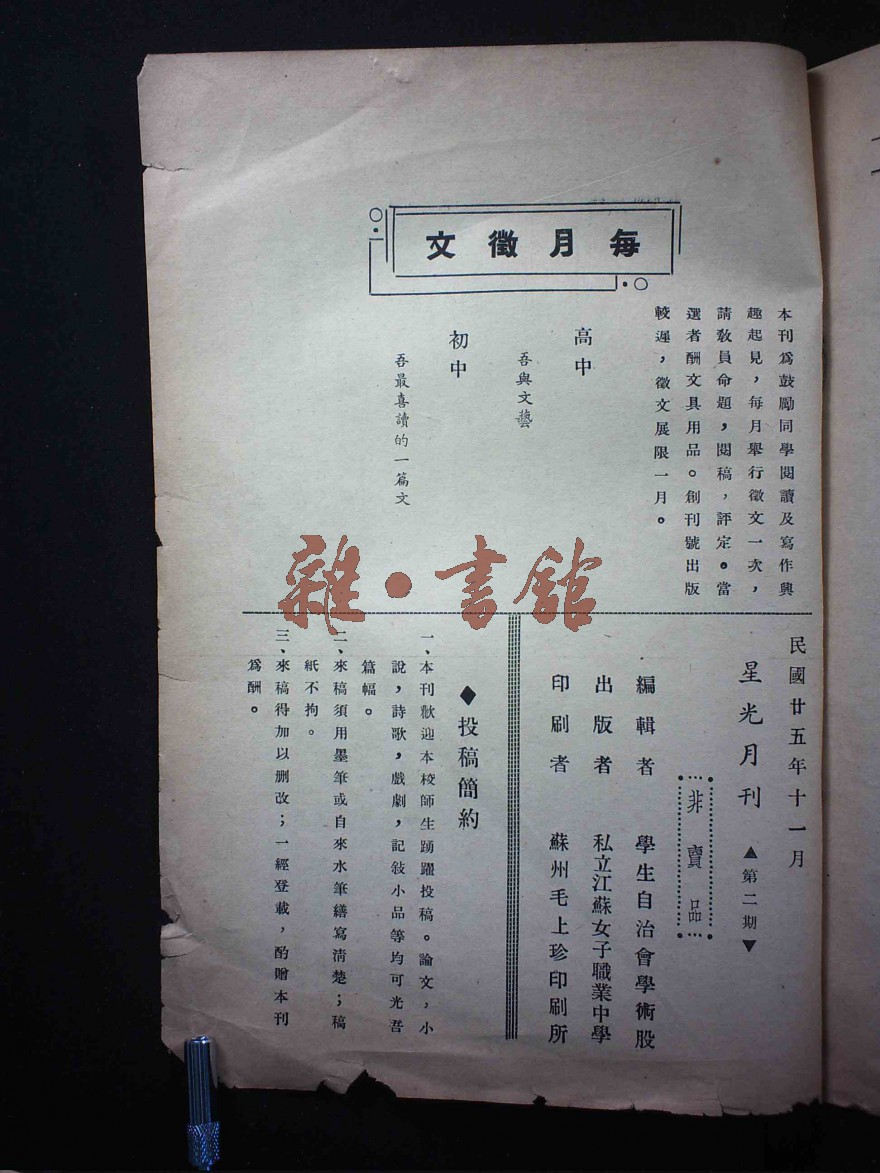 每月徵文
本刊爲鼓勵同學閱讀及寫作興
趣起見，每月舉行徵文一次，
請敎員命題，閱稿，評定。當
選者酬文具用品。創刊號出版
較遲，徵文展限一月。
高中
吾與文藝
初中
吾最喜讀的一篇文
民國廿五年十一月
星光月刊 ▲第二期▼
非賣品
編輯者 學生自治會學術股
出版者 私立江蘇女子職業中學
印刷者 蘇州毛上珍印刷所
◆投稿簡約
一、本刊歡迎本校師生踴躍投稿。論文，小
說，詩歌，戲劇，記敍小品等均可光吾
篇幅。
二、來稿須用墨筆或自來水筆繕寫淸楚；稿
紙不拘。
三、來稿得加以删改；一經登載，酌贈本刊
爲酬。
雜·書館